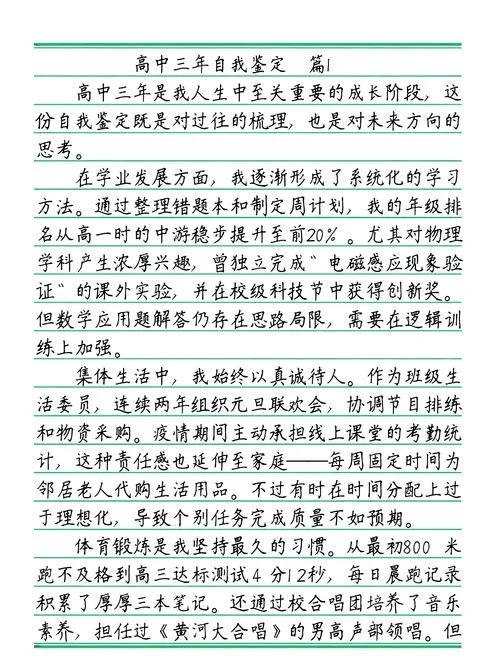 高中三年自我鉴定 篇1
高中三年是我人生中至关重要的成长阶段，这
份自我鉴定既是对过往的梳理，也是对未来方向的
思考。
在学业发展方面，我逐渐形成了系统化的学习
方法。通过整理错题本和制定周计划，我的年级排
名从高一时的中游稳步提升至前20%。尤其对物理
学科产生浓厚兴趣，曾独立完成“电磁感应现象验
证“的课外实验，并在校级科技节中获得创新奖。
但数学应用题解答仍存在思路局限，需要在逻辑训
练上加强。
集体生活中，我始终以真诚待人。作为班级生
活委员，连续两年组织元旦联欢会，协调节目排练
和物资采购。疫情期间主动承担线上课堂的考勤统
计，这种责任感也延伸至家庭——每周固定时间为
邻居老人代购生活用品。不过有时在时间分配上过
于理想化，导致个别任务完成质量不如预期。
体育锻炼是我坚持最久的习惯。从最初800 米
跑不及格到高三达标测试4 分12秒，每日晨跑记录
积累了厚厚三本笔记。还通过校合唱团培养了音乐
素养，担任过《黄河大合唱》的男高声部领唱。但